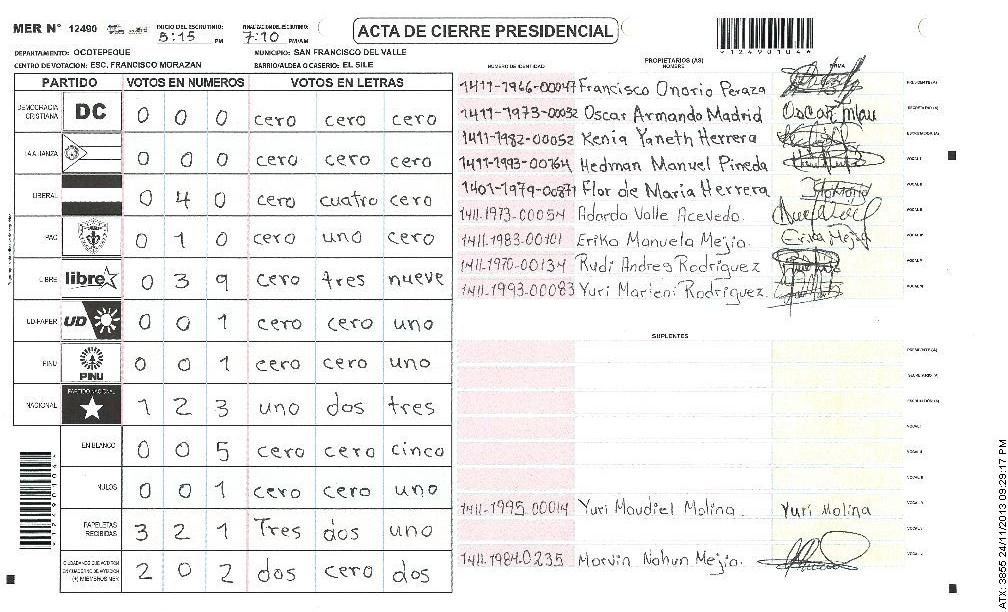 MER Nº 12490 INICIO DEL ESCRUTINIO: 5:15 PM FINALIZACION DEL ESCRUTINIO: 7:10 PM/AM ACTA DE CIERRE PRESIDENCIAL
DEPARTAMENTO: OCOTEPEQUE MUNICIPIO: SAN FRANCISCO DEL VALLE
CENTRO DE VOTACION: ESC. FRANCISCO MORAZAN BARRIO/ALDEA O CASERIO: EL SILE
12490104
PARTIDO VOTOS EN NUMEROS VOTOS EN LETRAS
DEMOCRACIA CRISTIANA DC 0 0 0 cero cero cero
LA ALIANZA 0 0 0 cero cero cero
LIBERAL 0 4 0 cero cuatro cero
PAC 0 1 0 cero uno cero
LIBRE libre 0 3 9 cero tres nueve
UD-FAPER UD 0 0 1 cero cero uno
PINU PINU 0 0 1 cero cero uno
NACIONAL PARTIDO NACIONAL 1 2 3 uno dos tres
EN BLANCO 0 0 5 cero cero cinco
NULOS 0 0 1 cero cero uno
PAPELETAS RECIBIDAS 3 2 1 Tres dos uno
CIUDADANOS QUE VOTARON EN CUADERNO DE VOTACION (+) MIEMBROS MER 2 0 2 dos cero dos
PROPIETARIOS (AS)
NUMERO DE IDENTIDAD NOMBRE FIRMA
1411-1966-00047 Francisco Onorio Peraza PRESIDENTE (A)
1411-1973-00032 Oscar Armando Madrid Oscar SECRETARIO (A)
1411-1982-00052 Kenia Yaneth Herrera ESCRUTADOR (A)
1411-1993-00764 Hedman Manuel Pineda VOCAL I
1401-1979-00871 Flor de Maria Herrera VOCAL II
1411-1973-00054 Adardo Valle Acevedo. VOCAL III
1411-1983-00101 Erika Manuela Mejia. Erika Mejia VOCAL IV
1411-1970-00134 Rudi Andres Rodriguez VOCAL V
1411-1993-00083 Yuri Marleni Rodriguez. VOCAL VI
SUPLENTES
PRESIDENTE (A)
SECRETARIO (A)
ESCRUTADOR (A)
VOCAL I
VOCAL II
VOCAL III
1411-1995-00014 Yuri Maudiel Molina. Yuri Molina
1411-1984-0235 Marvin Nahun Mejia.
ATX: 3855 24/11/2013 09:29:17 PM